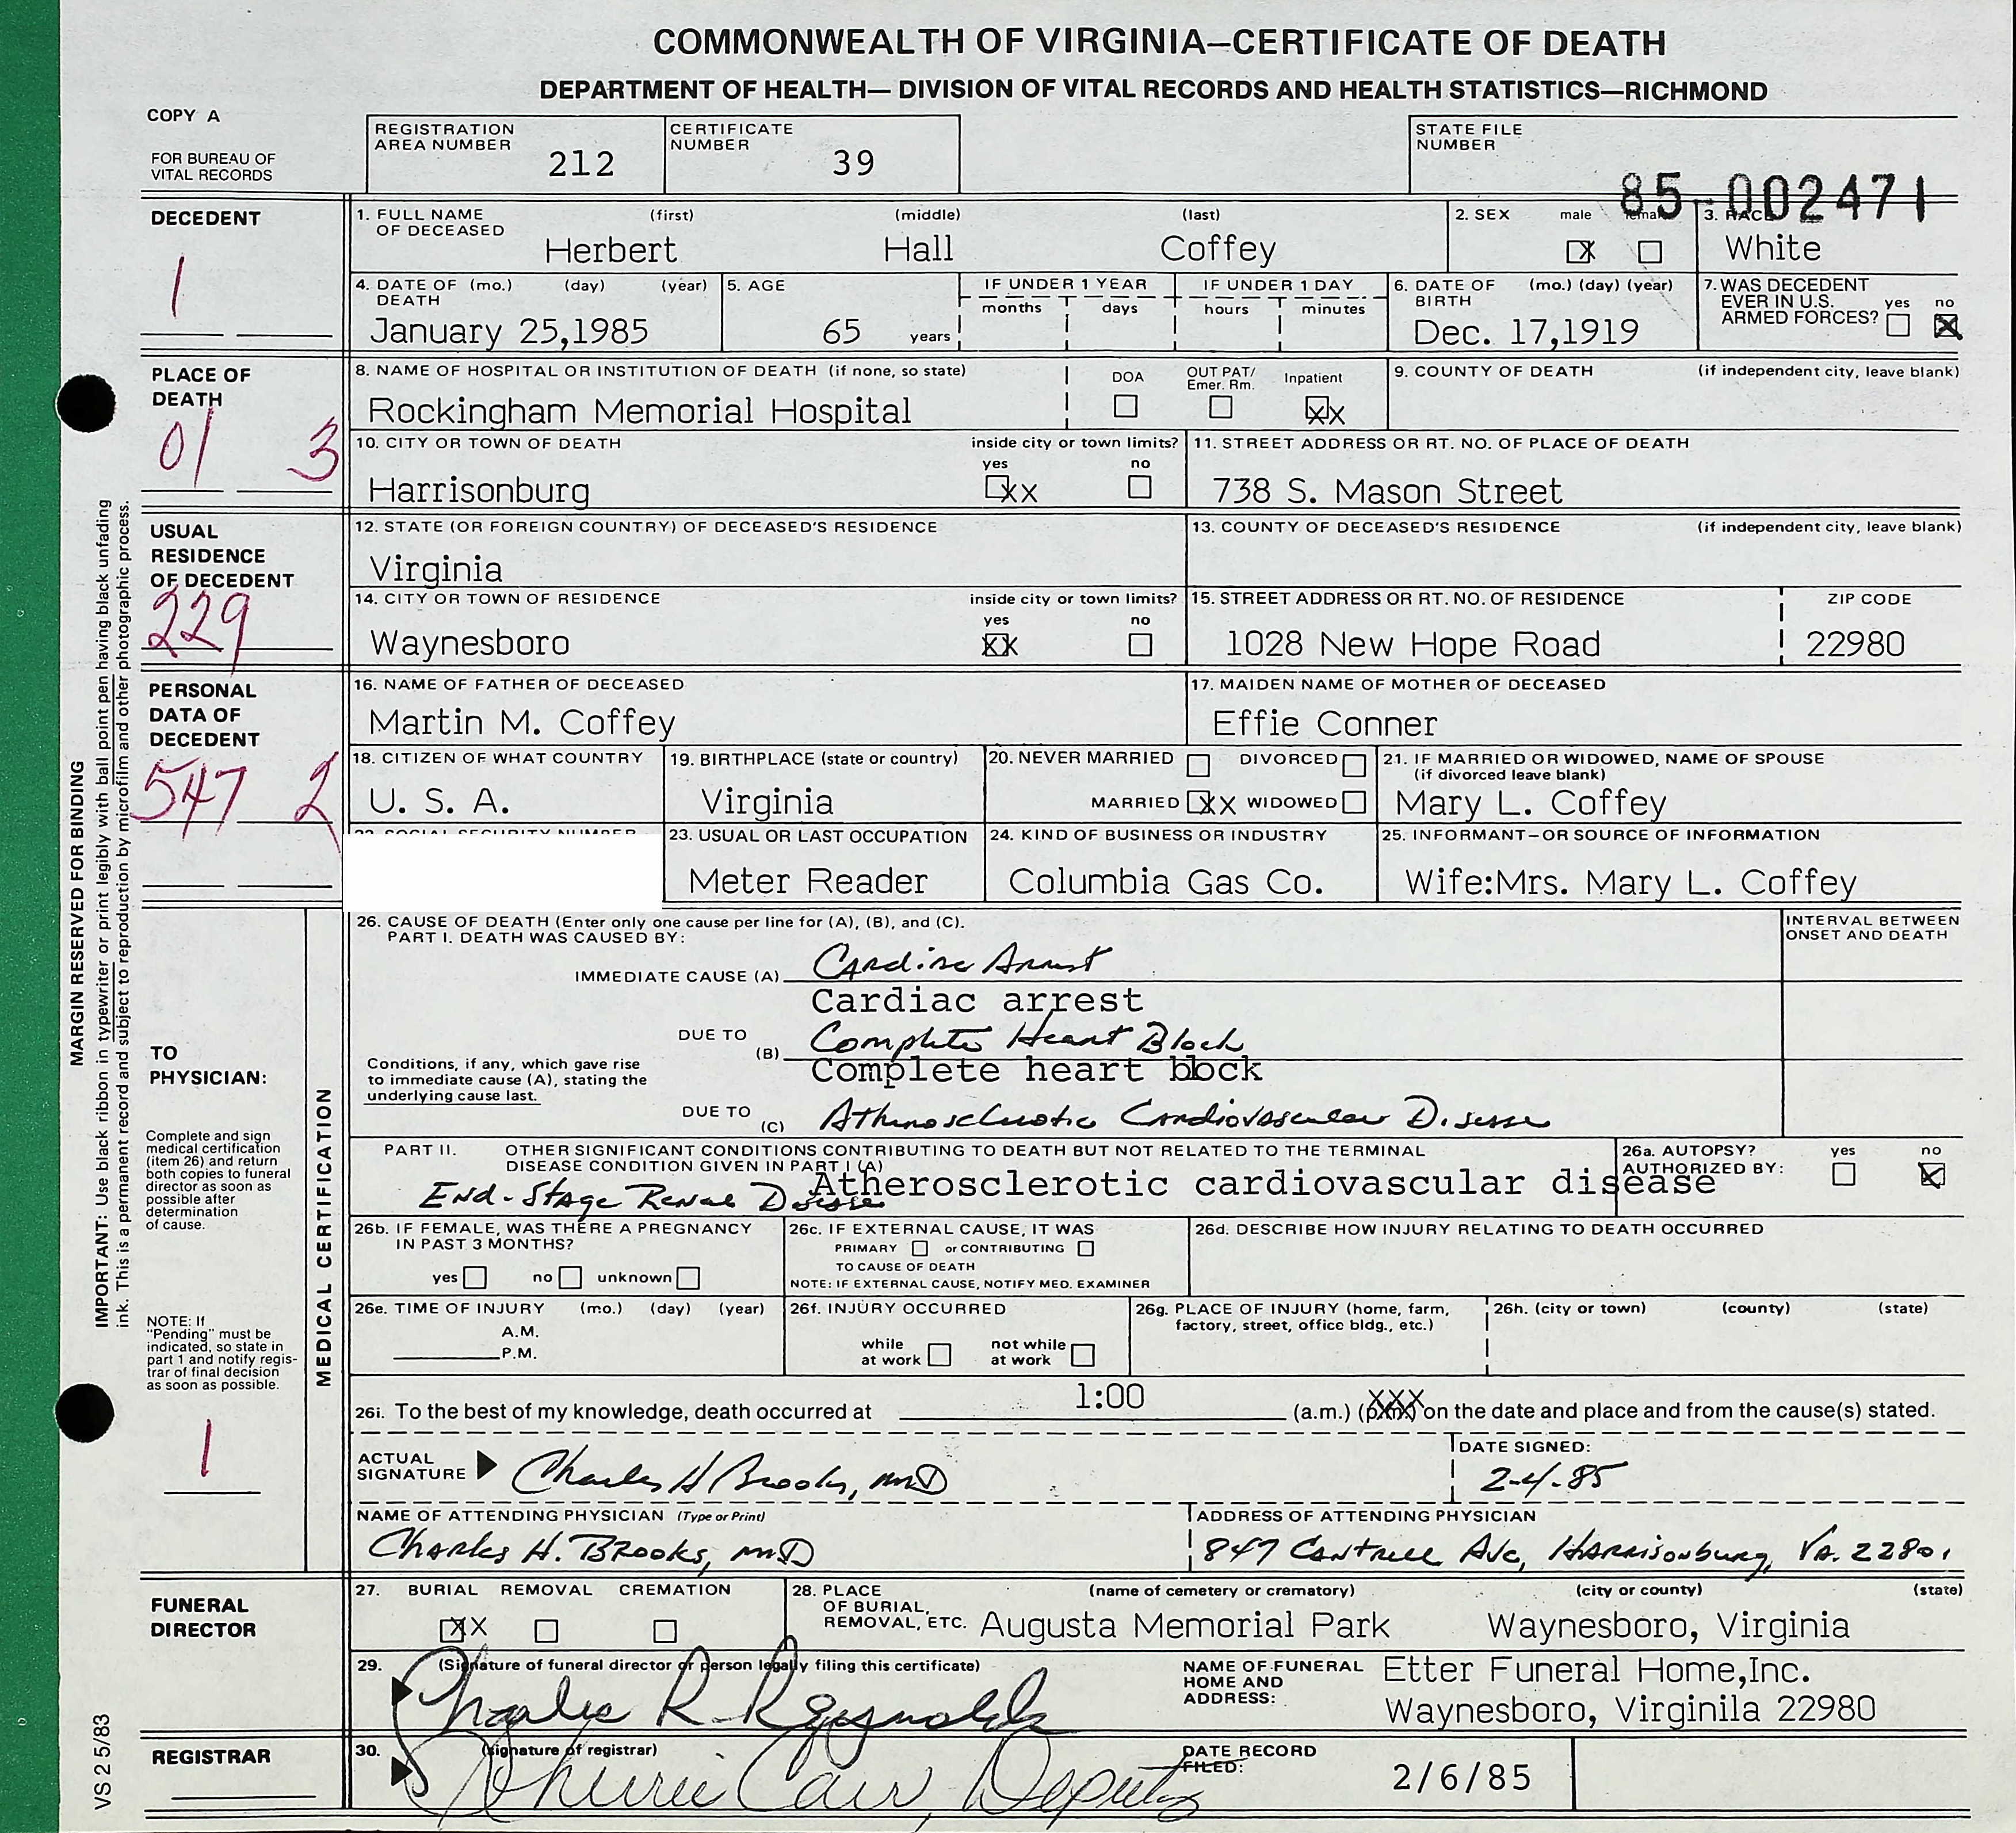 COMMONWEALTH OF VIRGINIA—CERTIFICATE OF DEATH
DEPARTMENT OF HEALTH— DIVISION OF VITAL RECORDS AND HEALTH STATISTICS—RICHMOND
COPY A
FOR BUREAU OF
VITAL RECORDS
REGISTRATION
AREA NUMBER 212
CERTIFICATE
NUMBER 39
STATE FILE
NUMBER
85-002471
DECEDENT
1
1. FULL NAME (first) (middle) (last)
OF DECEASED
Herbert Hall Coffey
2. SEX male female
X
3. RACE
White
4. DATE OF (mo.) (day) (year)
DEATH
January 25,1985
5. AGE
65 years
IF UNDER 1 YEAR
months days
IF UNDER 1 DAY
hours minutes
6. DATE OF (mo.) (day) (year)
BIRTH
Dec. 17,1919
7. WAS DECEDENT
EVER IN U.S. yes no
ARMED FORCES? X
PLACE OF
DEATH
01 3
8. NAME OF HOSPITAL OR INSTITUTION OF DEATH (if none, so state)
Rockingham Memorial Hospital
DOA
OUT PAT/
Emer. Rm.
Inpatient
XX
9. COUNTY OF DEATH (if independent city, leave blank)
10. CITY OR TOWN OF DEATH inside city or town limits?
yes no
Harrisonburg XX
11. STREET ADDRESS OR RT. NO. OF PLACE OF DEATH
738 S. Mason Street
USUAL
RESIDENCE
OF DECEDENT
229
12. STATE (OR FOREIGN COUNTRY) OF DECEASED'S RESIDENCE
Virginia
13. COUNTY OF DECEASED'S RESIDENCE (if independent city, leave blank)
14. CITY OR TOWN OF RESIDENCE inside city or town limits?
yes no
Waynesboro XX
15. STREET ADDRESS OR RT. NO. OF RESIDENCE ZIP CODE
1028 New Hope Road 22980
PERSONAL
DATA OF
DECEDENT
547 2
16. NAME OF FATHER OF DECEASED
Martin M. Coffey
17. MAIDEN NAME OF MOTHER OF DECEASED
Effie Conner
18. CITIZEN OF WHAT COUNTRY
U. S. A.
19. BIRTHPLACE (state or country)
Virginia
20. NEVER MARRIED DIVORCED
MARRIED XX WIDOWED
21. IF MARRIED OR WIDOWED, NAME OF SPOUSE
(if divorced leave blank)
Mary L. Coffey
22. SOCIAL SECURITY NUMBER
23. USUAL OR LAST OCCUPATION
Meter Reader
24. KIND OF BUSINESS OR INDUSTRY
Columbia Gas Co.
25. INFORMANT—OR SOURCE OF INFORMATION
Wife:Mrs. Mary L. Coffey
MARGIN RESERVED FOR BINDING
IMPORTANT: Use black ribbon in typewriter or print legibly with ball point pen having black unfading
ink. This is a permanent record and subject to reproduction by microfilm and other photographic process.
TO
PHYSICIAN:
Complete and sign
medical certification
(item 26) and return
both copies to funeral
director as soon as
possible after
determination
of cause.
NOTE: If
"Pending" must be
indicated, so state in
part 1 and notify regis-
trar of final decision
as soon as possible.
1
MEDICAL CERTIFICATION
26. CAUSE OF DEATH (Enter only one cause per line for (A), (B), and (C).
PART I. DEATH WAS CAUSED BY:
INTERVAL BETWEEN
ONSET AND DEATH
IMMEDIATE CAUSE (A) Cardiac Arrest
Cardiac arrest
DUE TO
(B) Complete Heart Block
Complete heart block
Conditions, if any, which gave rise
to immediate cause (A), stating the
underlying cause last.
DUE TO
(C) Atherosclerotic Cardiovascular Disease
PART II. OTHER SIGNIFICANT CONDITIONS CONTRIBUTING TO DEATH BUT NOT RELATED TO THE TERMINAL
DISEASE CONDITION GIVEN IN PART I (A)
Atherosclerotic cardiovascular disease
End-Stage Renal Disease
26a. AUTOPSY? yes no
AUTHORIZED BY: X
26b. IF FEMALE, WAS THERE A PREGNANCY
IN PAST 3 MONTHS?
yes no unknown
26c. IF EXTERNAL CAUSE, IT WAS
PRIMARY or CONTRIBUTING
TO CAUSE OF DEATH
NOTE: IF EXTERNAL CAUSE, NOTIFY MED. EXAMINER
26d. DESCRIBE HOW INJURY RELATING TO DEATH OCCURRED
26e. TIME OF INJURY (mo.) (day) (year)
A.M.
P.M.
26f. INJURY OCCURRED
while not while
at work at work
26g. PLACE OF INJURY (home, farm,
factory, street, office bldg., etc.)
26h. (city or town) (county) (state)
26i. To the best of my knowledge, death occurred at 1:00 (a.m.) (p.m.) XXX on the date and place and from the cause(s) stated.
ACTUAL
SIGNATURE Charles H Brooks, MD
DATE SIGNED:
2-4-85
NAME OF ATTENDING PHYSICIAN (Type or Print)
Charles H. Brooks, MD
ADDRESS OF ATTENDING PHYSICIAN
847 Cantrell Ave, Harrisonburg, Va. 22801
FUNERAL
DIRECTOR
27. BURIAL REMOVAL CREMATION
XX
28. PLACE (name of cemetery or crematory) (city or county) (state)
OF BURIAL,
REMOVAL, ETC. Augusta Memorial Park Waynesboro, Virginia
29. (Signature of funeral director or person legally filing this certificate)
Charlie R Reynolds
NAME OF FUNERAL
HOME AND
ADDRESS:
Etter Funeral Home,Inc.
Waynesboro, Virginila 22980
REGISTRAR
30. (signature of registrar)
Deputy
DATE RECORD
FILED:
2/6/85
VS 2 5/83